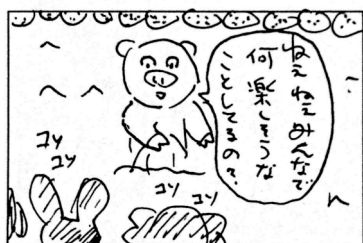 ねえねえみんなで
何楽しそうな
ことしてるの?
コソ
コソ
コソ
コソ